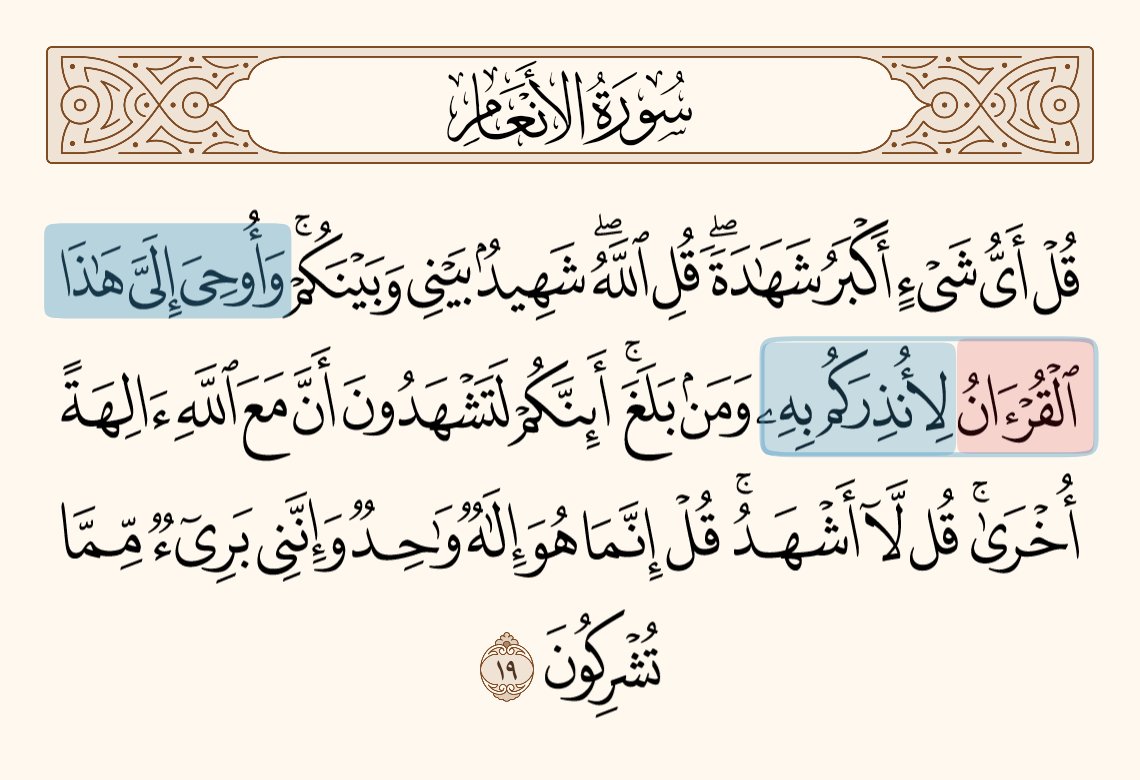 سُورَةُ الأَنْعَامِ
قُلْ أَىُّ شَىْءٍ أَكْبَرُ شَهَـٰدَةً ۖ قُلِ ٱللَّهُ ۖ شَهِيدٌۢ بَيْنِى وَبَيْنَكُمْ ۚ وَأُوحِىَ إِلَىَّ هَـٰذَا
ٱلْقُرْءَانُ لِأُنذِرَكُم بِهِۦ وَمَنۢ بَلَغَ ۚ أَئِنَّكُمْ لَتَشْهَدُونَ أَنَّ مَعَ ٱللَّهِ ءَالِهَةً
أُخْرَىٰ ۚ قُل لَّآ أَشْهَدُ ۚ قُلْ إِنَّمَا هُوَ إِلَـٰهٌ وَٰحِدٌ وَإِنَّنِى بَرِىٓءٌ مِّمَّا
تُشْرِكُونَ ١٩